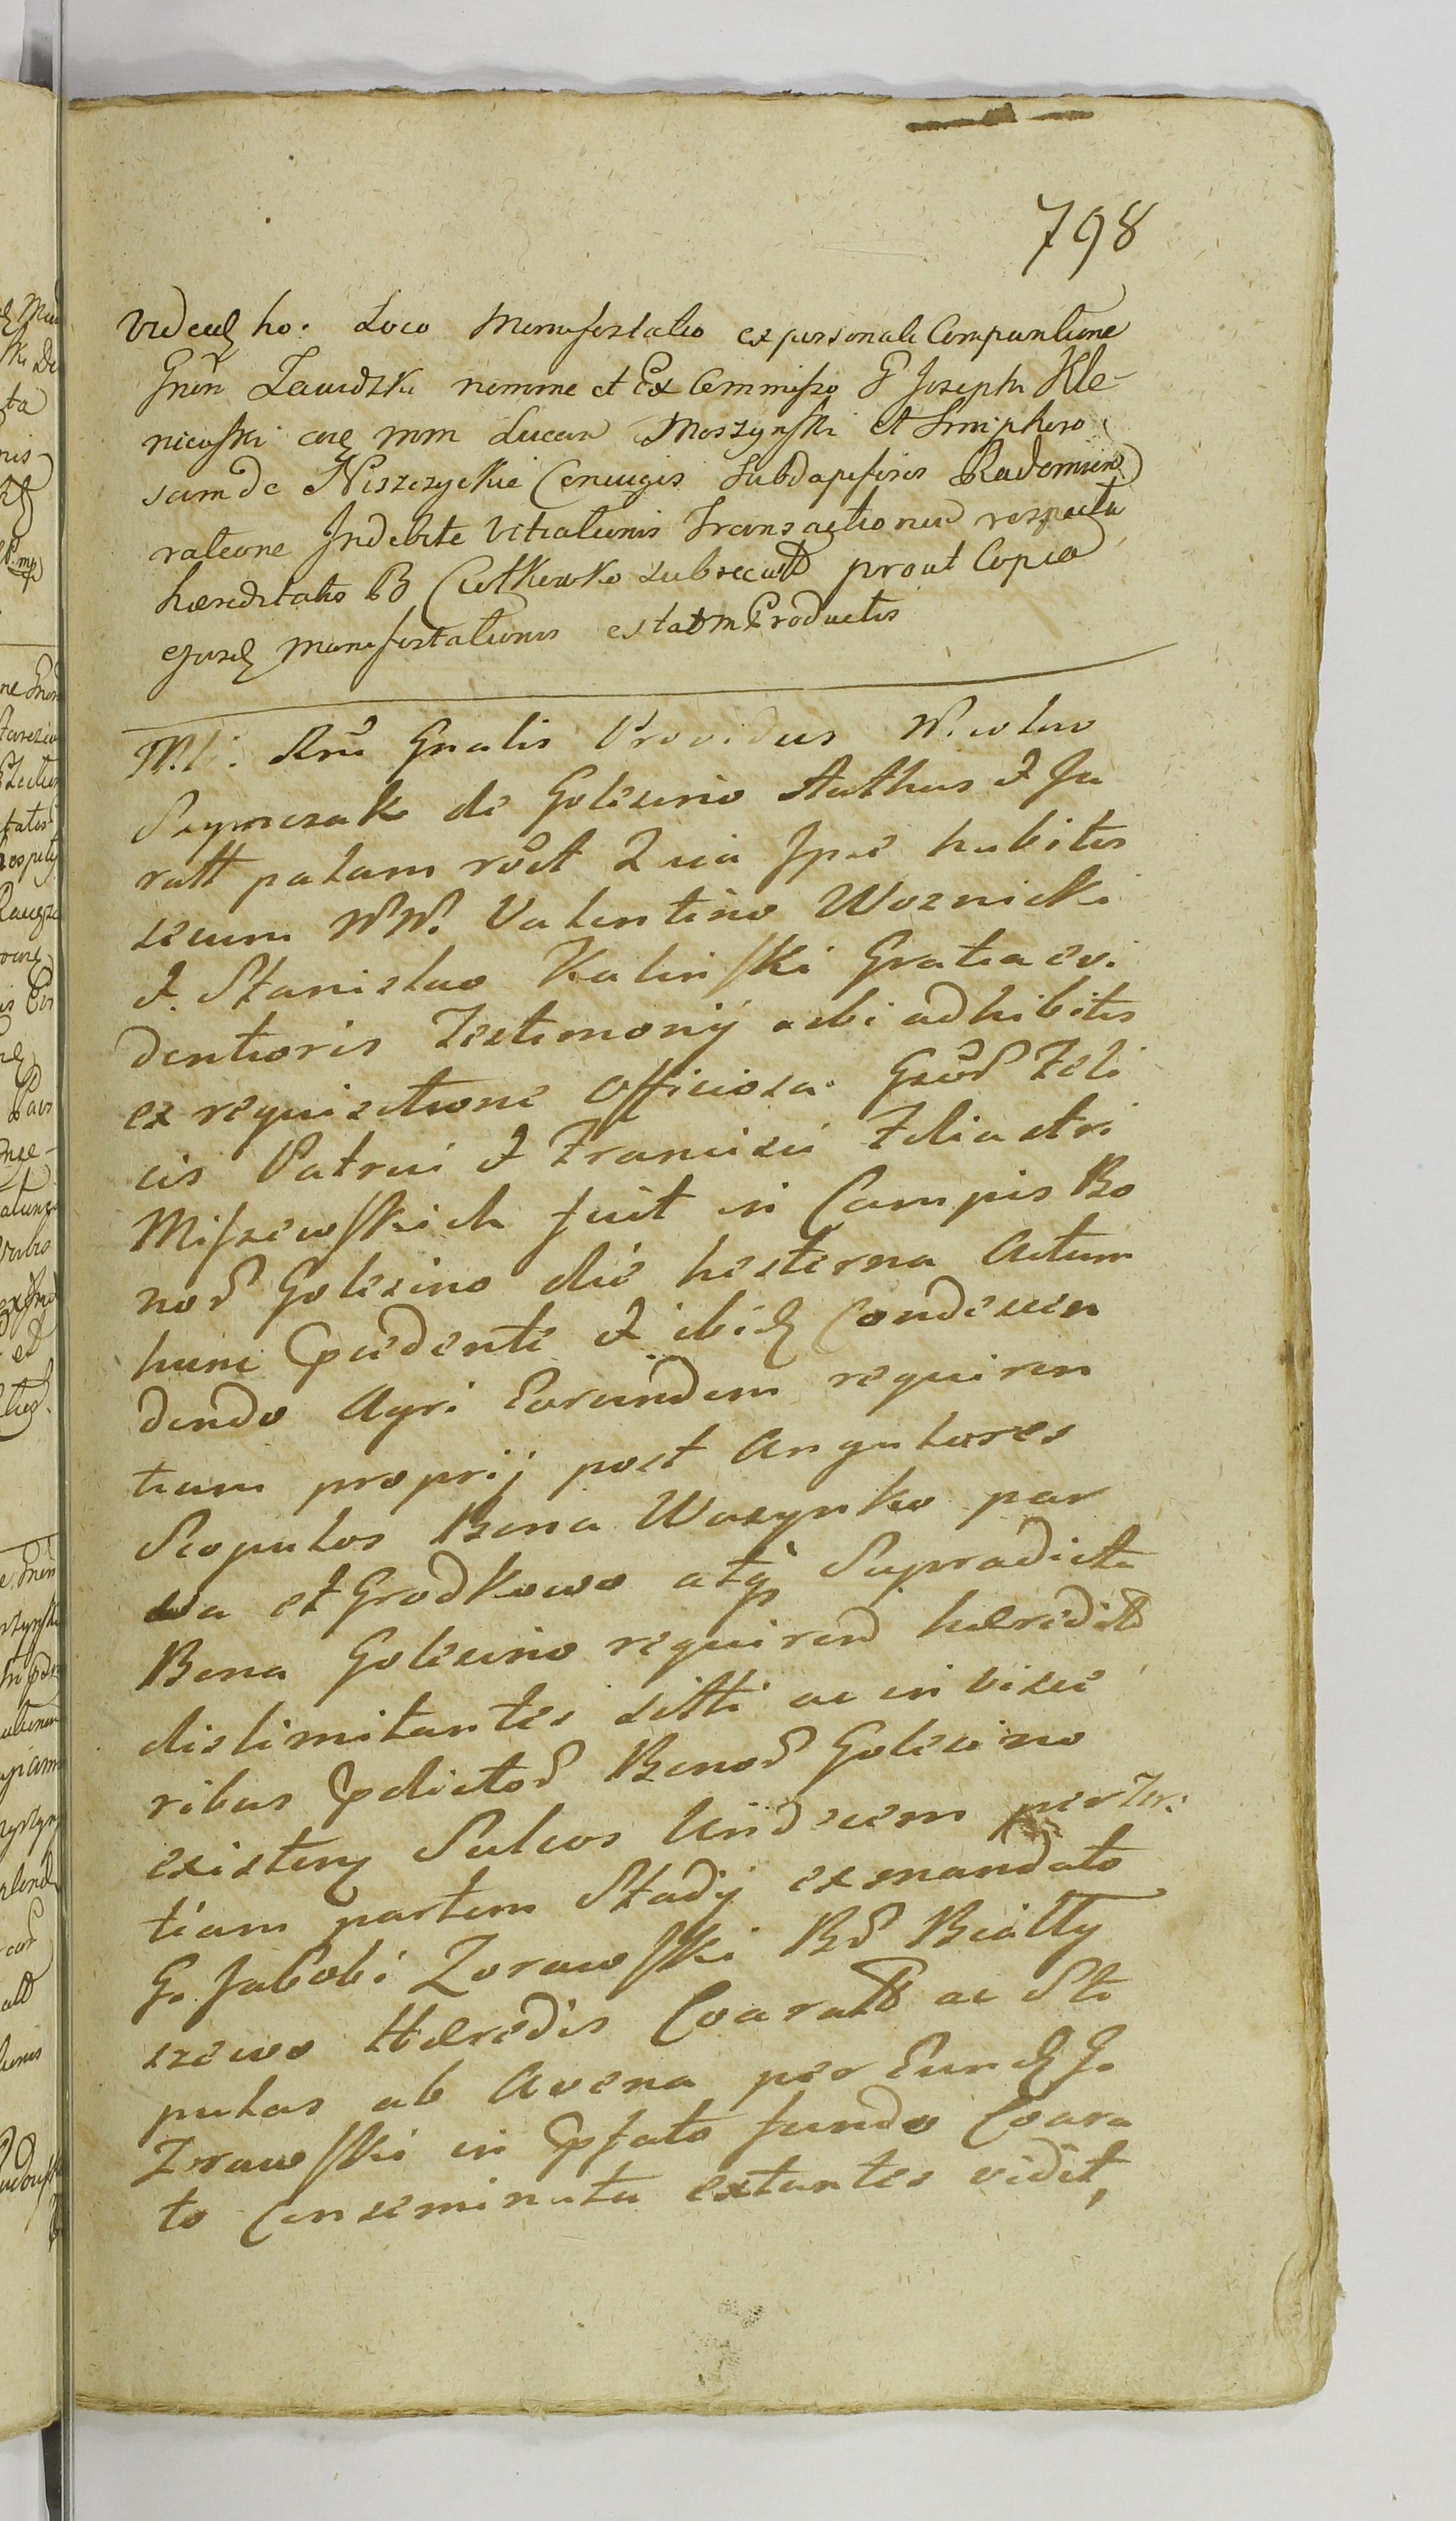 798
Videlz ho. Loco Manifestatio ex personali Comparitione
Gnēn Zawidzki nomine et Ex Commisso G Josephi Kle-
niewski coræ mm Lucam Moszynski et Symphoro
sam de Niszczyckie Conjuges Subdapiferos Radomien
ratione Indebite Vitiationis Transactionū respectu
hæreditatis B Ciotkowko subsecutt prout Copia
ejusdz manifestationis estatm Productis
M. Rni Gnalis Providus Nicolaus
Szymczak de Golesino Authus & Ju
ratt palam rdct Quia Ipse habitis
secum NN. Valentino Woznicki
& Stanislao Kalinski Gratia evi
dentioris Testimonÿ sibi adhibitis
ex requisitione Officiosa Gsōd Feli
cis Patrui & Francisci Filiastri
Miszewskich fuit in Campis Bo
nod Golesino die hesterna Actum
hunc Ppcedente & ibidz Condescen
dendo Agri Eorundem requiren
tium proprij post Angulares
Scopulos Bona Woxynko par
va et Grodkowo atq Supradicta
Bona Golesino requirend hæreditt
dislimitantes sitti ac in visce
ribus Ppdictod Bonod Golesino
existenz Sulcos Undecem per Ter
tiam partem Stadÿ ex mandato
G. Jacobi Zorawski Bd Biatty
szewo Hæredis Coaratt ac Sti
pulas ab Avena per Eundz G.
Zrawski in Ppfato fundo Coara
to Conseminata extantes vidit,